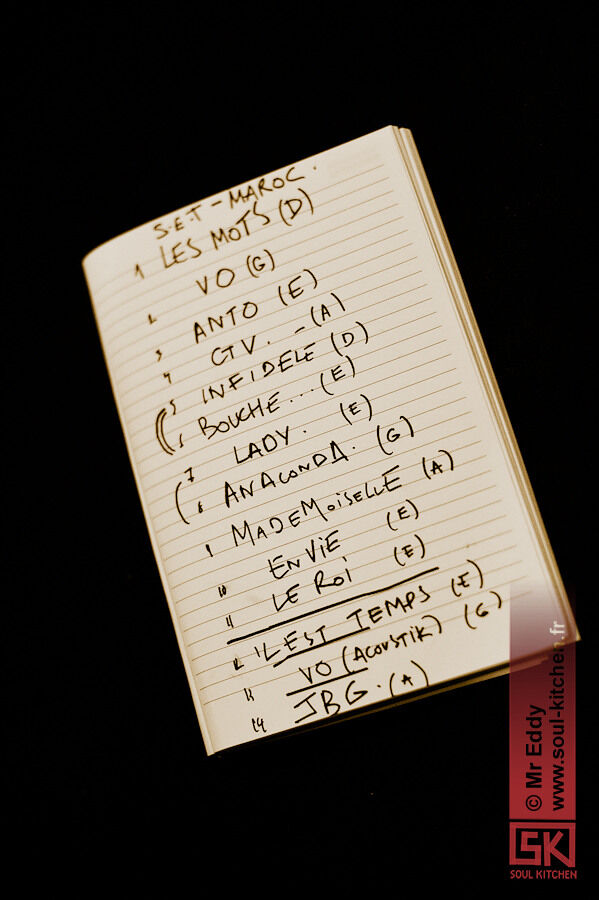 S.E.T - MAROC.
1 LES MOTS (D)
2 VO (G)
3 ANTO (E)
4 GTV. - (A)
5 INFIDELE (D)
6 BOUCHE... (E)
7 LADY. (E)
8 ANACONDA. (G)
9 MADEMOISELLE (A)
10 ENVIE (E)
11 LE ROI (E)
12 IL EST TEMPS (E)
13 VO (ACOUSTIK) (G)
14 JBG. (A)
© Mr Eddy
www.soul-kitchen.fr
SK
SOUL KITCHEN